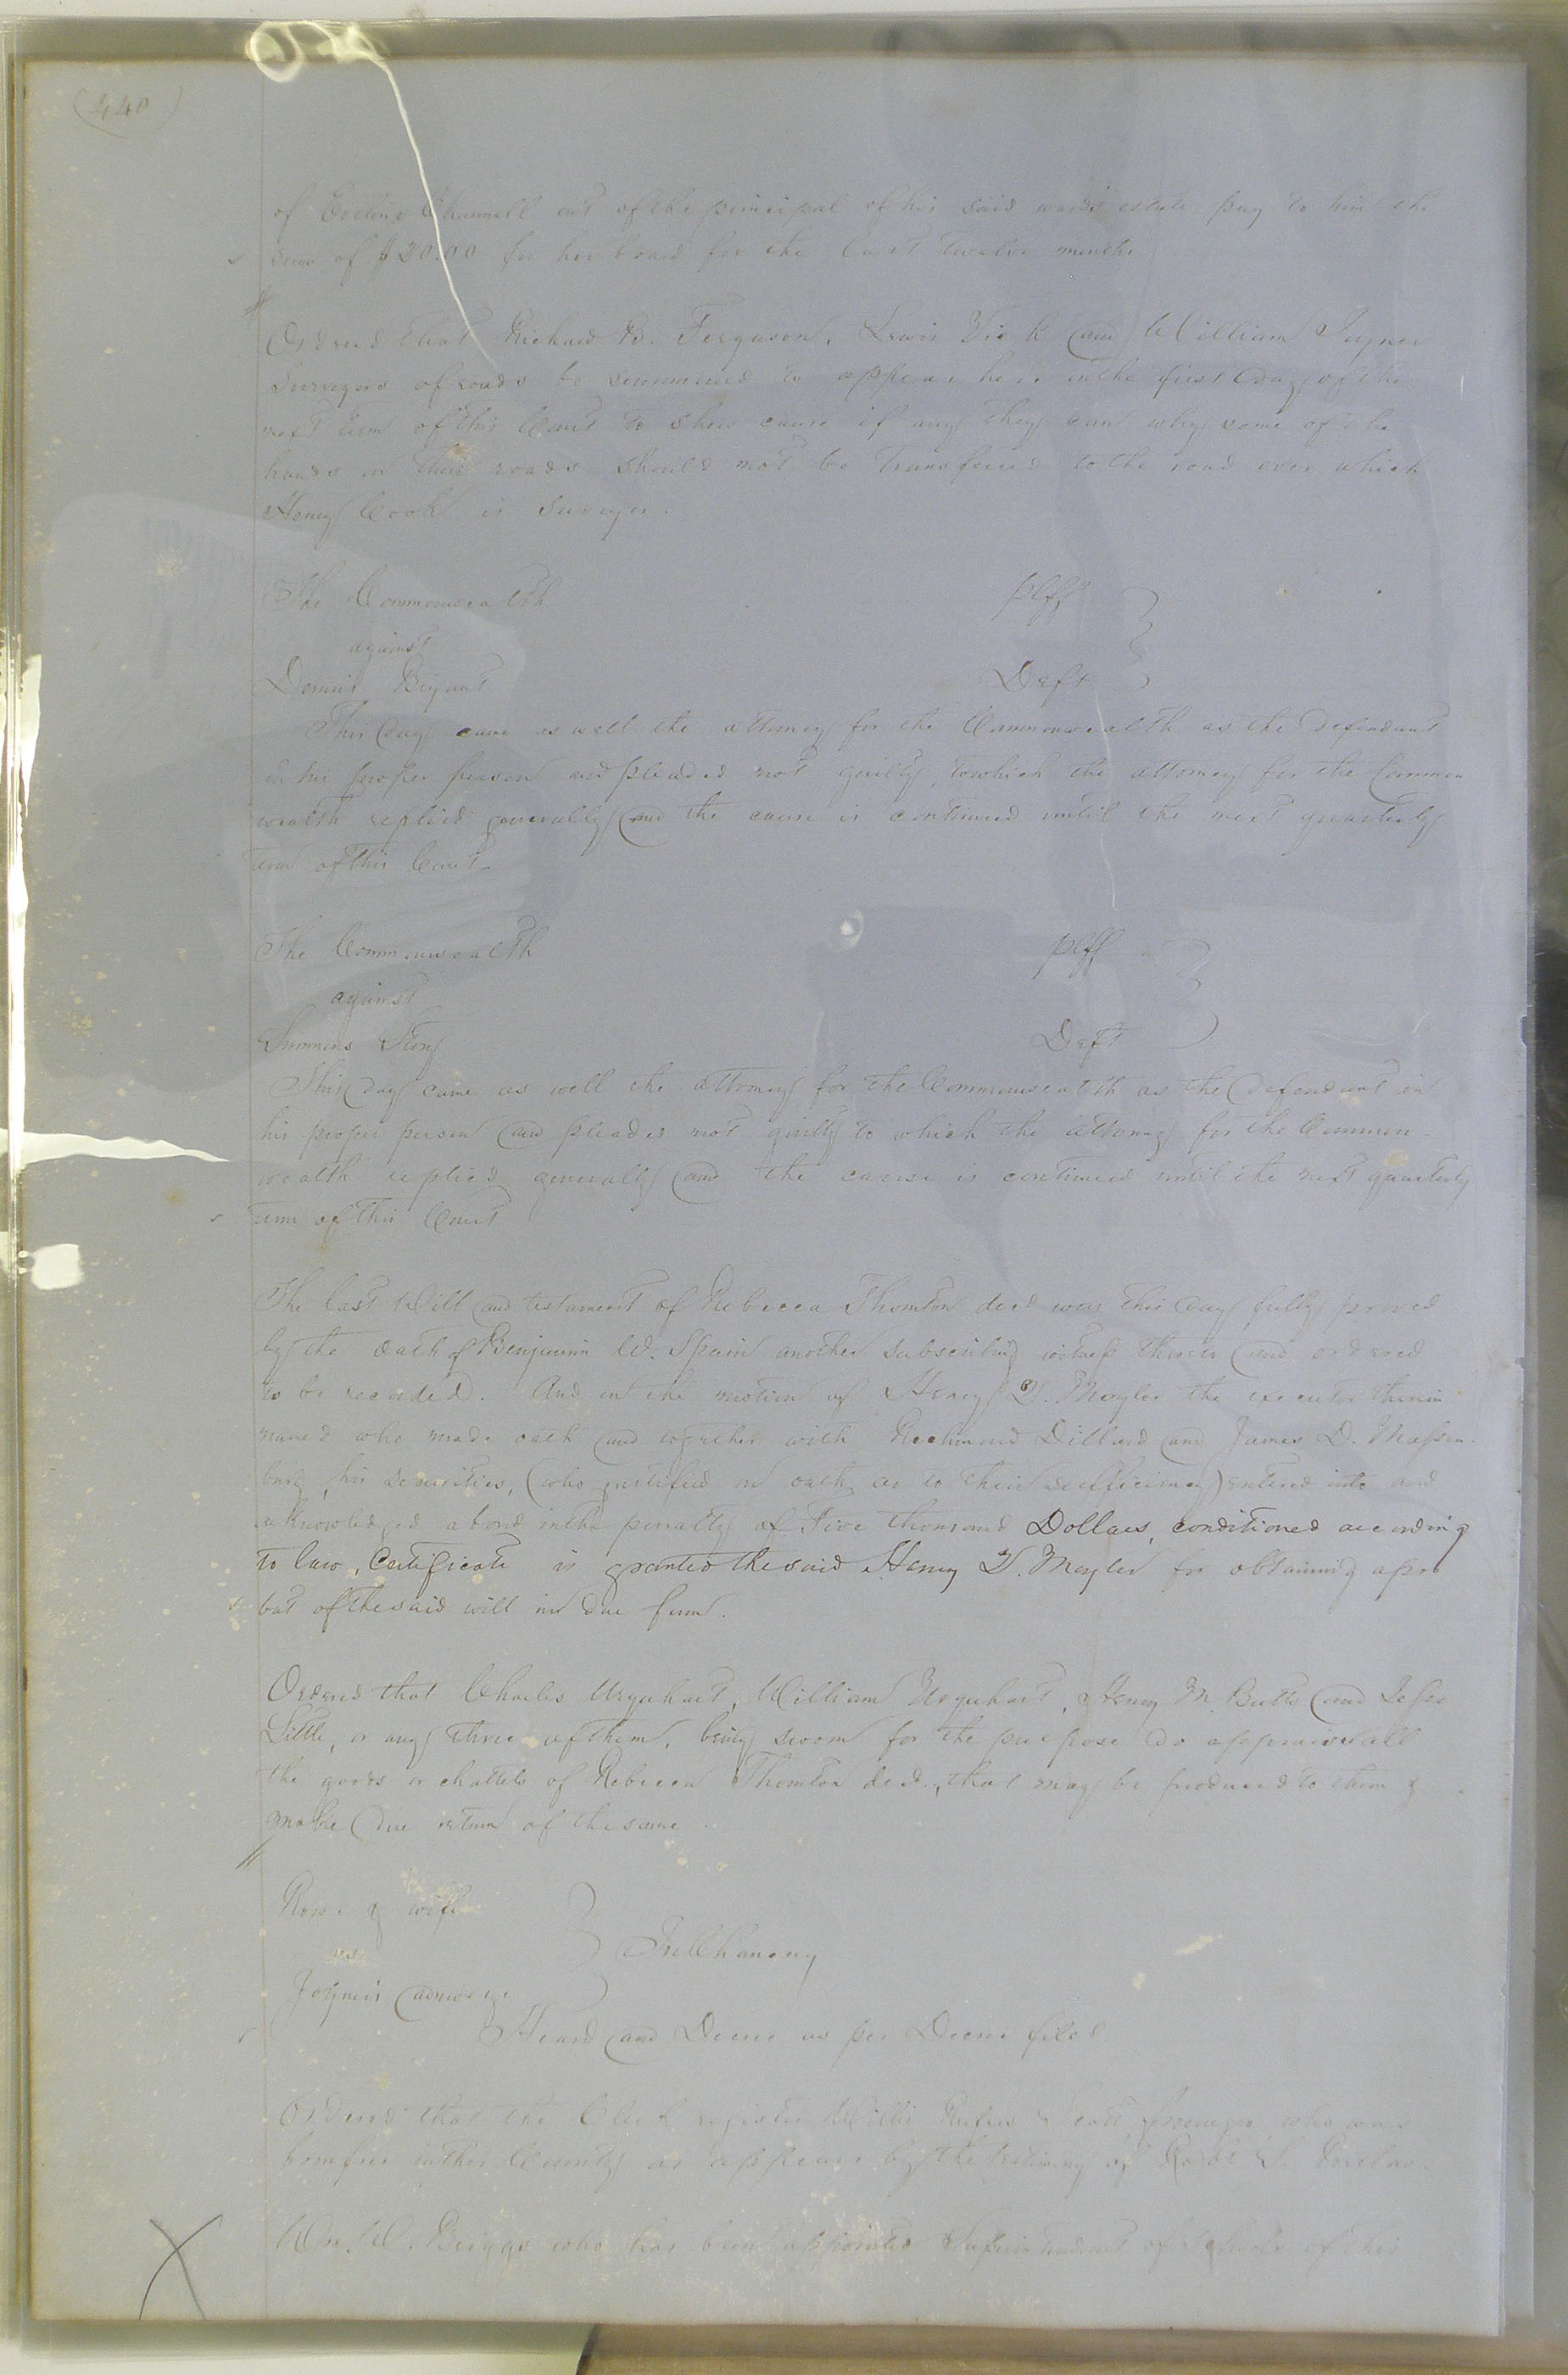 (440)
of Eveline Channell out of the principal of his said wards estate pay to him the
sum of $20.00 for her board for the last twelve months
Ordered that Richard B. Ferguson, Lewis Vick and William Joyner
Surveyors of roads be summoned to appear here on the first day of the
next term of this Court to shew cause if any they can why some of the
hands on their roads should not be transferred to the road over which
Henry Cook is surveyor.
The Commonwealth Plff
against
Dennis Bryant Deft
This day came as well the attorney for the Commonwealth as the defendant
in his proper person and pleaded not guilty, to which the attorney for the Common
wealth replied generally and the cause is continued until the next quarterly
term of this Court
The Commonwealth Plff
against
Simmons Deft
This day came as well the attorney for the Commonwealth as the defendant in
his proper person and pleaded not guilty to which the attorney for the Common-
wealth replied generally and the cause is continued until the next quarterly
term of this Court
The last Will and testament of Rebecca Thornton decd was this day fully proved
by the oath of Benjamin W. Spain another subscribing witness thereto and ordered
to be recorded. And on the motion of Henry D. Moyler the executor therein
named who made oath and together with Richmond Dillard and James D. Massen-
burg, his securities, (who justified on oath as to their sufficiency) entered into and
acknowledged a bond in the penalty of Five thousand Dollars, conditioned according
to law, Certificate is granted the said Henry D. Moyler for obtaining a pro
bat of the said will in due form.
Ordered that Charles Urquhart, William Urquhart, Henry M. Butts and Jesse
Little, or any three of them, being sworn for the purpose do appraise all
the goods or chattels of Rebecca Thornton decd., that may be produced to them &
make due return of the same
Rowe & wife
vs
Joyner's In Chancery
Heard and Decree as per Decree filed
Ordered that the Clerk register Scott who was
born free in this County as appears by the testimony of
Wm. W. Briggs who has been appointed Superintendent of Schools of this